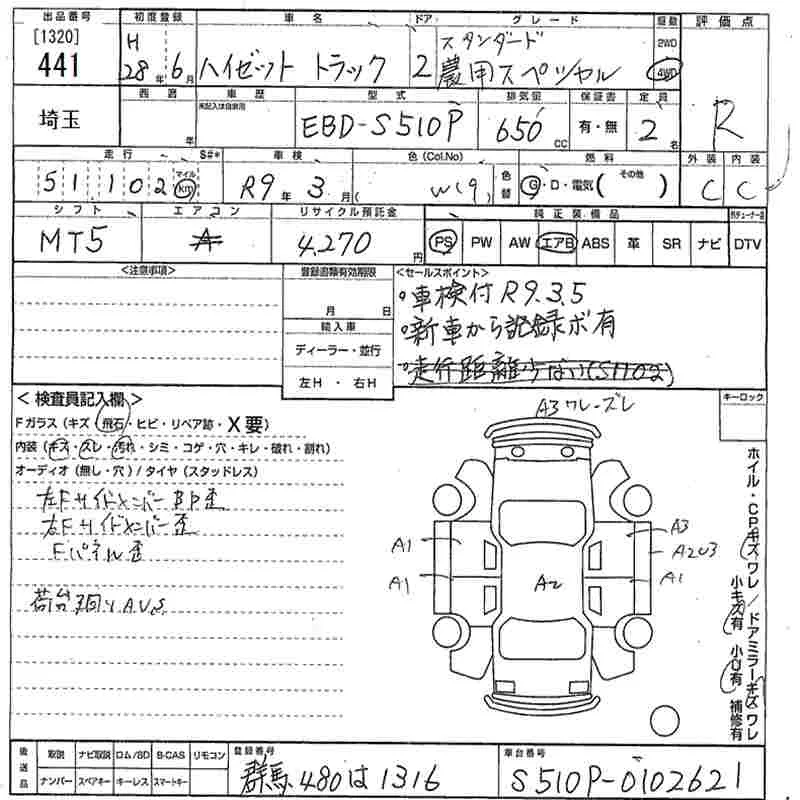 出品番号 初度登録 車名 ドア グレード 駆動 評価点
[1320]
441
H 28年 6月 ハイゼット トラック 2 スタンダード 農用スペシャル 2WD 4WD R
埼玉
西暦 年 車歴 未記入は自家用 型式 EBD-S510P 排気量 650 CC 保証書 有・無 定員 2名
走行 S#* 車検 色(Col.No) 色替 燃料 外装 内装
51102 マイル km R9年 3月( W(9) G・D・電気( その他 ) C C
シフト エアコン リサイクル預託金 純正装備品
MT5 A 4,270円 PS PW AW エアB ABS 革 SR ナビ DTV
<注意事項> 登録書類有効期限 <セールスポイント>
月 日
輸入車
ディーラー・並行
左H・右H
・車検付 R9.3.5
・新車から記録ボ有
・走行距離少ない(51102)
<検査員記入欄>
Fガラス(キズ・飛石・ヒビ・リペア跡・X要)
内装(キズ・スレ・汚れ・シミ・コゲ・穴・キレ・破れ・割れ)
オーディオ(無し・穴)/タイヤ(スタッドレス)
左FサイドメンバーBP歪
右Fサイドメンバー歪
Fパネル歪
荷台廻りA.U.S
キーロック
A3 ワレ-ズレ
A1 A3
A2U3
A1 A2 A1
ホイル・CPキズワレ/ドアミラーキズワレ
小キズ有 小U有 補修有
後送品 取説 ナビ取説 ロム/SD B-CAS リモコン 登録番号 車台番号
ナンバー スペアキー キーレス スマートキー 群馬480は1316 S510P-0102621